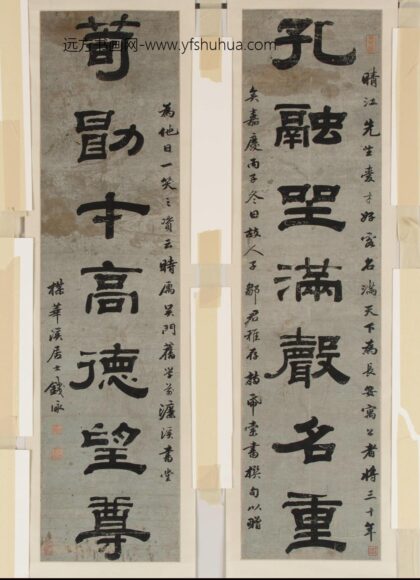 远方书画网-www.yfshuhua.com
晴江先生愛才好客名滿天下為長安寓公者將三十年
孔融坐滿聲名重
矣嘉慶丙子冬日故人子鄒君雅存指帋索書撰句以贈
為他日一笑之資云時寓吳門舊學前濂溪書堂
荀勖才高德望尊
楳華溪居士錢泳